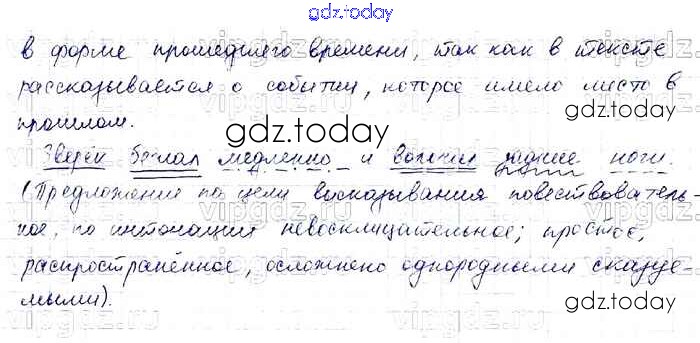 gdz.today
в форме прошедшего времени, так как в тексте
рассказывается о событии, которое имело место в
прошлом.
Зверёк бежал медленно и волочил задние ноги.
(Предложение по цели высказывания повествователь-
ное, по интонации невосклицательное; простое,
распространённое, осложнено однородными сказуе-
мыми).
gdz.today
gdz.today
gdz.today
gdz.today